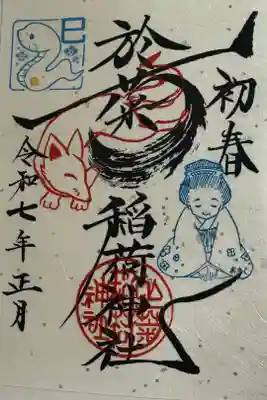 初春
於菊稲荷神社
令和七年正月
巳